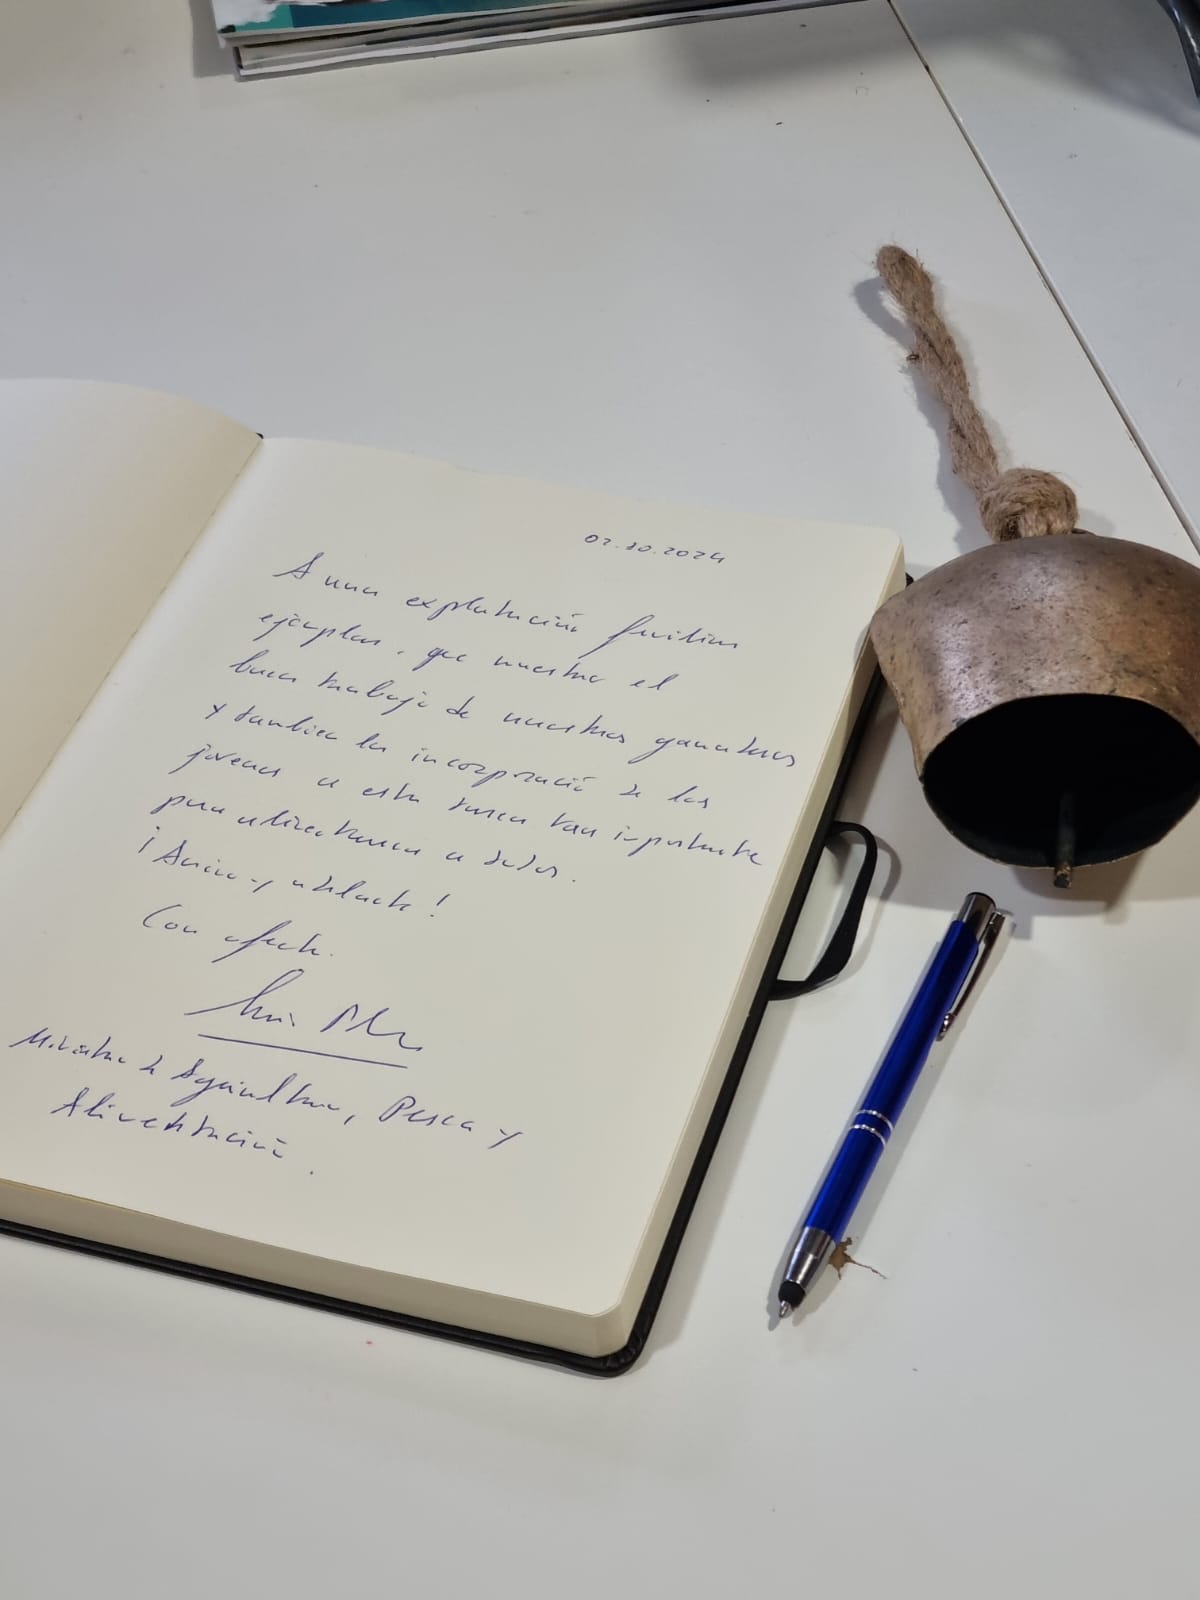 02.10.2024
A una explotación familiar
ejemplar, que muestra el
buen trabajo de nuestros ganaderos
y también la incorporación de los
jóvenes a esta tarea tan importante
para alimentarnos a todos.
¡Ánimo y adelante!
Con afecto.
Luis Planas
Ministro de Agricultura, Pesca y
Alimentación.